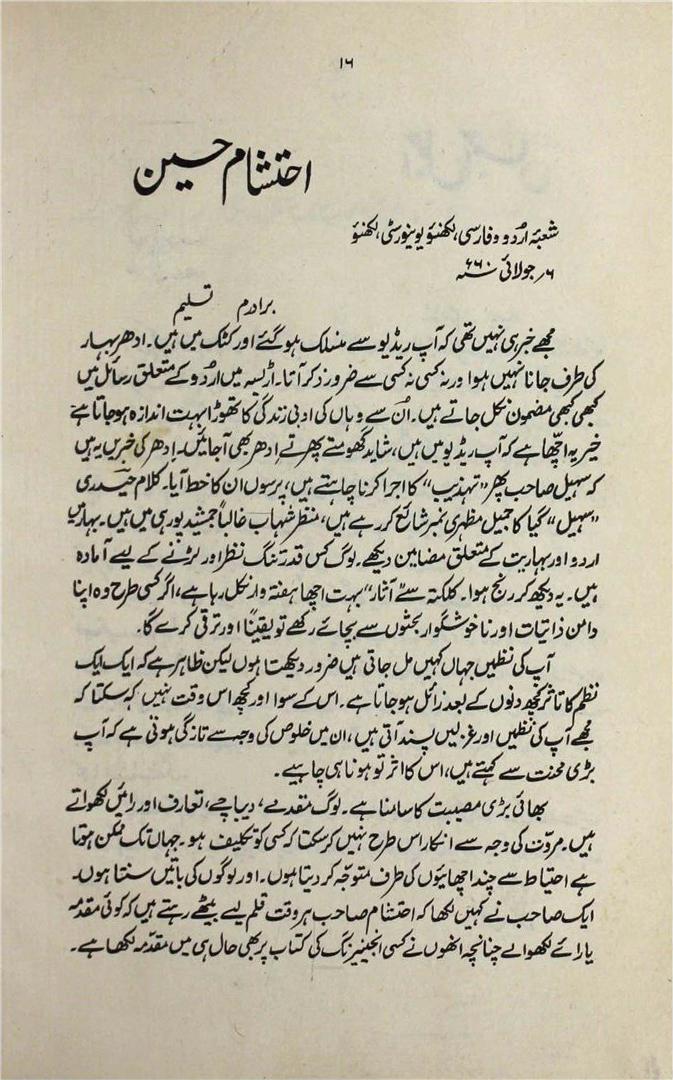 ۱۶
احتشام حسین
شعبۂ اُردو و فارسی، لکھنؤ یونیورسٹی، لکھنؤ
۶؍ جولائی ۶۶۰ سنہ
برادرم تسلیم
مجھے خبر ہی نہیں تھی کہ آپ ریڈیو سے منسلک ہو گئے اور کٹک میں ہیں۔ ادھر بہار
کی طرف جانا نہیں ہوا ورنہ کسی نہ کسی سے ضرور ذکر آتا۔ اڑیسہ میں اُردو کے متعلق رسائل میں
کبھی کبھی مضمون نکل جاتے ہیں۔ اُن سے وہاں کی ادبی زندگی کا تھوڑا بہت اندازہ ہو جاتا ہے
خیر یہ اچھا ہے کہ آپ ریڈیو میں ہیں، شاید گھومتے پھرتے اِدھر بھی آ جائیں۔ اِدھر کی خبریں یہ ہیں
کہ سہیل صاحب پھر ”تہذیب“ کا اجرا کرنا چاہتے ہیں، پرسوں ان کا خط آیا۔ کلام حیدری
”سہیل“ گیا کا جمیل مظہری نمبر شائع کر رہے ہیں، منظر شہاب غالباً جمشید پور ہی میں ہیں۔ بہار میں
اردو اور بہاریت کے متعلق مضامین دیکھے۔ لوگ کس قدر تنگ نظر اور لڑنے کے لیے آمادہ
ہیں۔ یہ دیکھ کر رنج ہوا۔ کلکتہ سے ”آثار“ بہت اچھا ہفتہ وار نکل رہا ہے، اگر کسی طرح وہ اپنا
دامن ذاتیات اور ناخوشگوار بحثوں سے بچائے رکھے تو یقیناً اور ترقی کرے گا۔
آپ کی نظمیں جہاں کہیں مل جاتی ہیں ضرور دیکھتا ہوں لیکن ظاہر ہے کہ ایک ایک
نظم کا تاثر کچھ دنوں کے بعد زائل ہو جاتا ہے۔ اس کے سوا اور کچھ اس وقت نہیں کہہ سکتا کہ
مجھے آپ کی نظمیں اور غزلیں پسند آتی ہیں، ان میں خلوص کی وجہ سے تازگی ہوتی ہے کہ آپ
بڑی محنت سے کہتے ہیں، اس کا اثر تو ہونا ہی چاہیے۔
بھائی بڑی مصیبت کا سامنا ہے۔ لوگ مقدمے، دیباچے، تعارف اور رائیں لکھواتے
ہیں۔ مروّت کی وجہ سے انکار اس طرح نہیں کر سکتا کہ کسی کو تکلیف ہو۔ جہاں تک ممکن ہوتا
ہے احتیاط سے چند اچھائیوں کی طرف متوجّہ کر دیتا ہوں۔ اور لوگوں کی باتیں سنتا ہوں۔
ایک صاحب نے کہیں لکھا کہ احتشام صاحب ہر وقت قلم لیے بیٹھے رہتے ہیں کہ کوئی مقدمہ
یا رائے لکھوا لے چنانچہ انھوں نے کسی انجینیرنگ کی کتاب پر بھی حال ہی میں مقدّمہ لکھا ہے۔